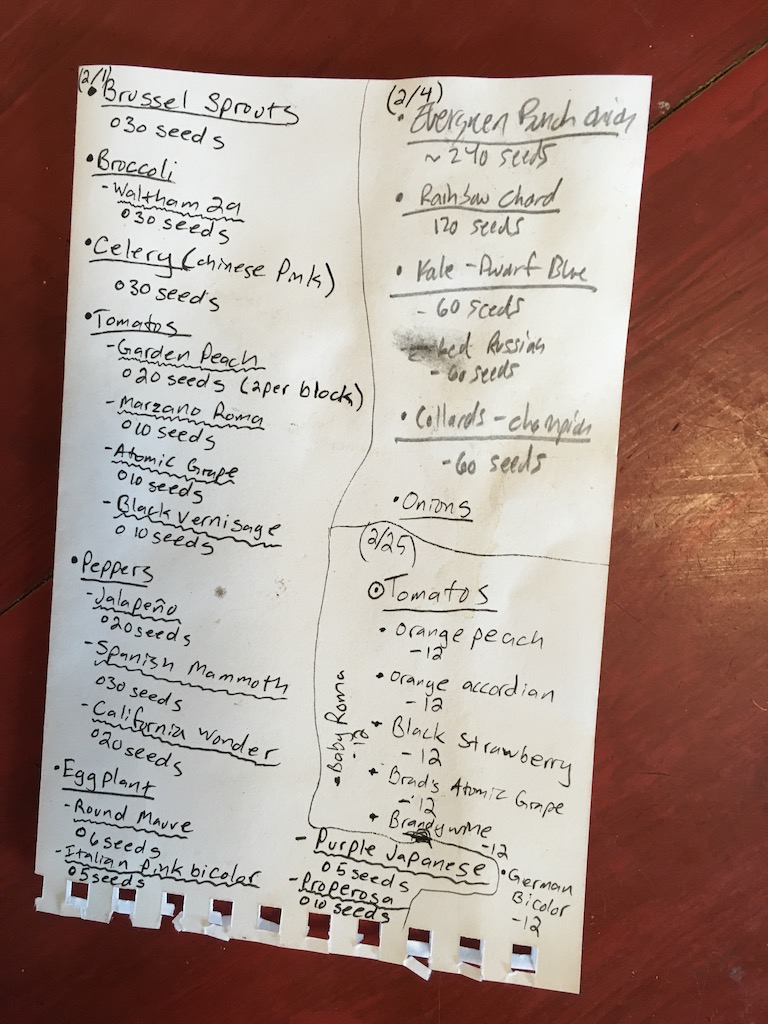 (2/1)
• Brussel Sprouts
o 30 seeds
• Broccoli
- Waltham 29
o 30 seeds
• Celery (chinese Pink)
o 30 seeds
• Tomatos
- Garden Peach
o 20 seeds (2 per block)
- Marzano Roma
o 10 seeds
- Atomic Grape
o 10 seeds
- Black Vernisage
o 10 seeds
• Peppers
- Jalapeño
o 20 seeds
- Spanish Mammoth
o 30 seeds
- California Wonder
o 20 seeds
• Eggplant
- Round Mauve
o 6 seeds
- Italian Pink bicolor
o 5 seeds
- Purple Japanese
o 5 seeds
- Properosa
o 10 seeds
(2/4)
• Evergreen Bunch onion
~ 240 seeds
• Rainbow Chard
120 seeds
• Kale - Dwarf Blue
- 60 seeds
- Red Russian
- 60 seeds
• Collards - champion
- 60 seeds
• Onions
(2/25)
Tomatos
• Orange peach
- 12
• Orange accordian
- 12
• Black Strawberry
- 12
• Brad's Atomic Grape
- 12
• Brandywine
- 12
• German
Bicolor
- 12
• Baby Roma
- 12